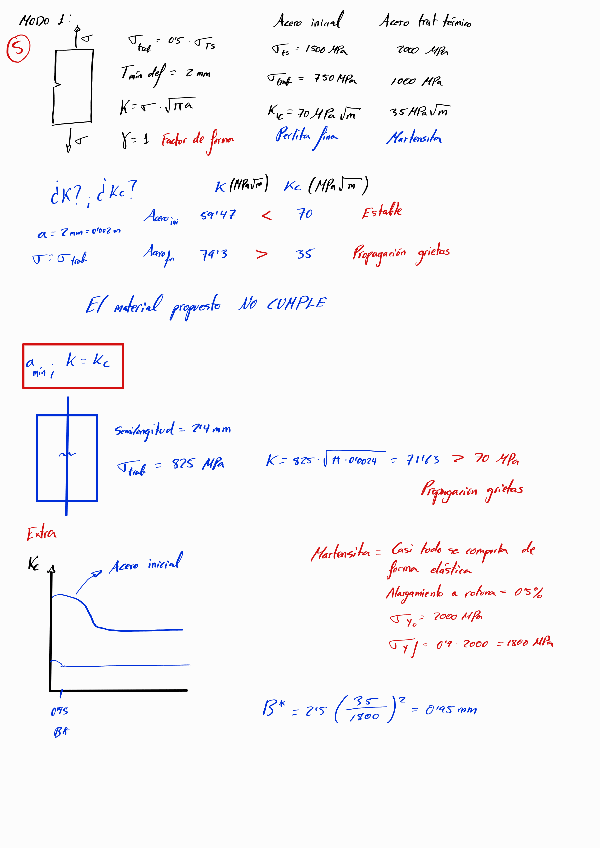 MODO 1:
5
σ
σ
σtrab = 0'5 · σTS
Tmín def = 2 mm
K = σ · √πa
Y = 1 Factor de forma
Acero inicial Acero trat térmico
σts = 1500 MPa 2000 MPa
σtrab = 750 MPa 1000 MPa
KIC = 70 MPa √m 35 MPa √m
Perlita fina Martensita
¿K? ; ¿Kc?
a = 2 mm = 0'002 m
σ = σtrab
K (MPa √m) Kc (MPa √m)
Acero ini 59'47 < 70 Estable
Acero fin 79'3 > 35 Propagación grietas
El material propuesto NO CUMPLE
a mín ; K = Kc
Semilongitud = 2'4 mm
σtrab = 825 MPa
K = 825 · √π · 0'0024 = 71'63 > 70 MPa
Propagación grietas
Extra
Kc
Acero inicial
B*
Martensita = Casi todo se comporta de
forma elástica
Alargamiento a rotura = 0'5%
σy0 = 2000 MPa
σyf = 0'9 · 2000 = 1800 MPa
B* = 2'5 (35/1800)² = 0'95 mm